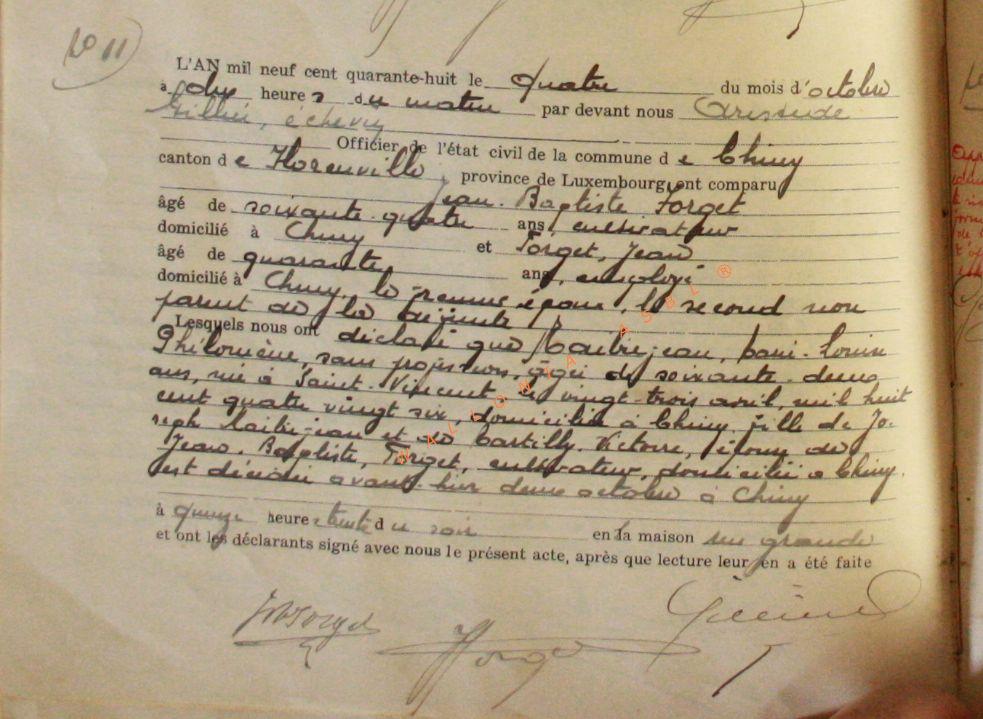 N° 11
L'AN mil neuf cent quarante-huit le quatre du mois d'octobre
à dix heures du matin par devant nous Aristide
échevin,
Officier de l'état civil de la commune de Chiny
canton de Florenville, province de Luxembourg, ont comparu
Jean-Baptiste Forget
âgé de soixante-quatre ans, cultivateur
domicilié à Chiny et Forget, Jean
âgé de quarante ans, employé
domicilié à Chiny, le premier époux, le second non
parent de la défunte
Lesquels nous ont déclaré que Maitrejean, Louise
Philomène, sans profession, âgée de soixante-deux
ans, née à Saint-Vincent le vingt-trois avril, mil huit
cent quatre vingt six, domiciliée à Chiny, fille de Jo-
seph Maitrejean et de Victoire, épouse de
Jean-Baptiste, Forget, cultivateur, domicilié à Chiny.
est décédée avant-hier deux octobre à Chiny
à heures trente du soir en la maison rue grande
et ont les déclarants signé avec nous le présent acte, après que lecture leur en a été faite
JBForget
Forget